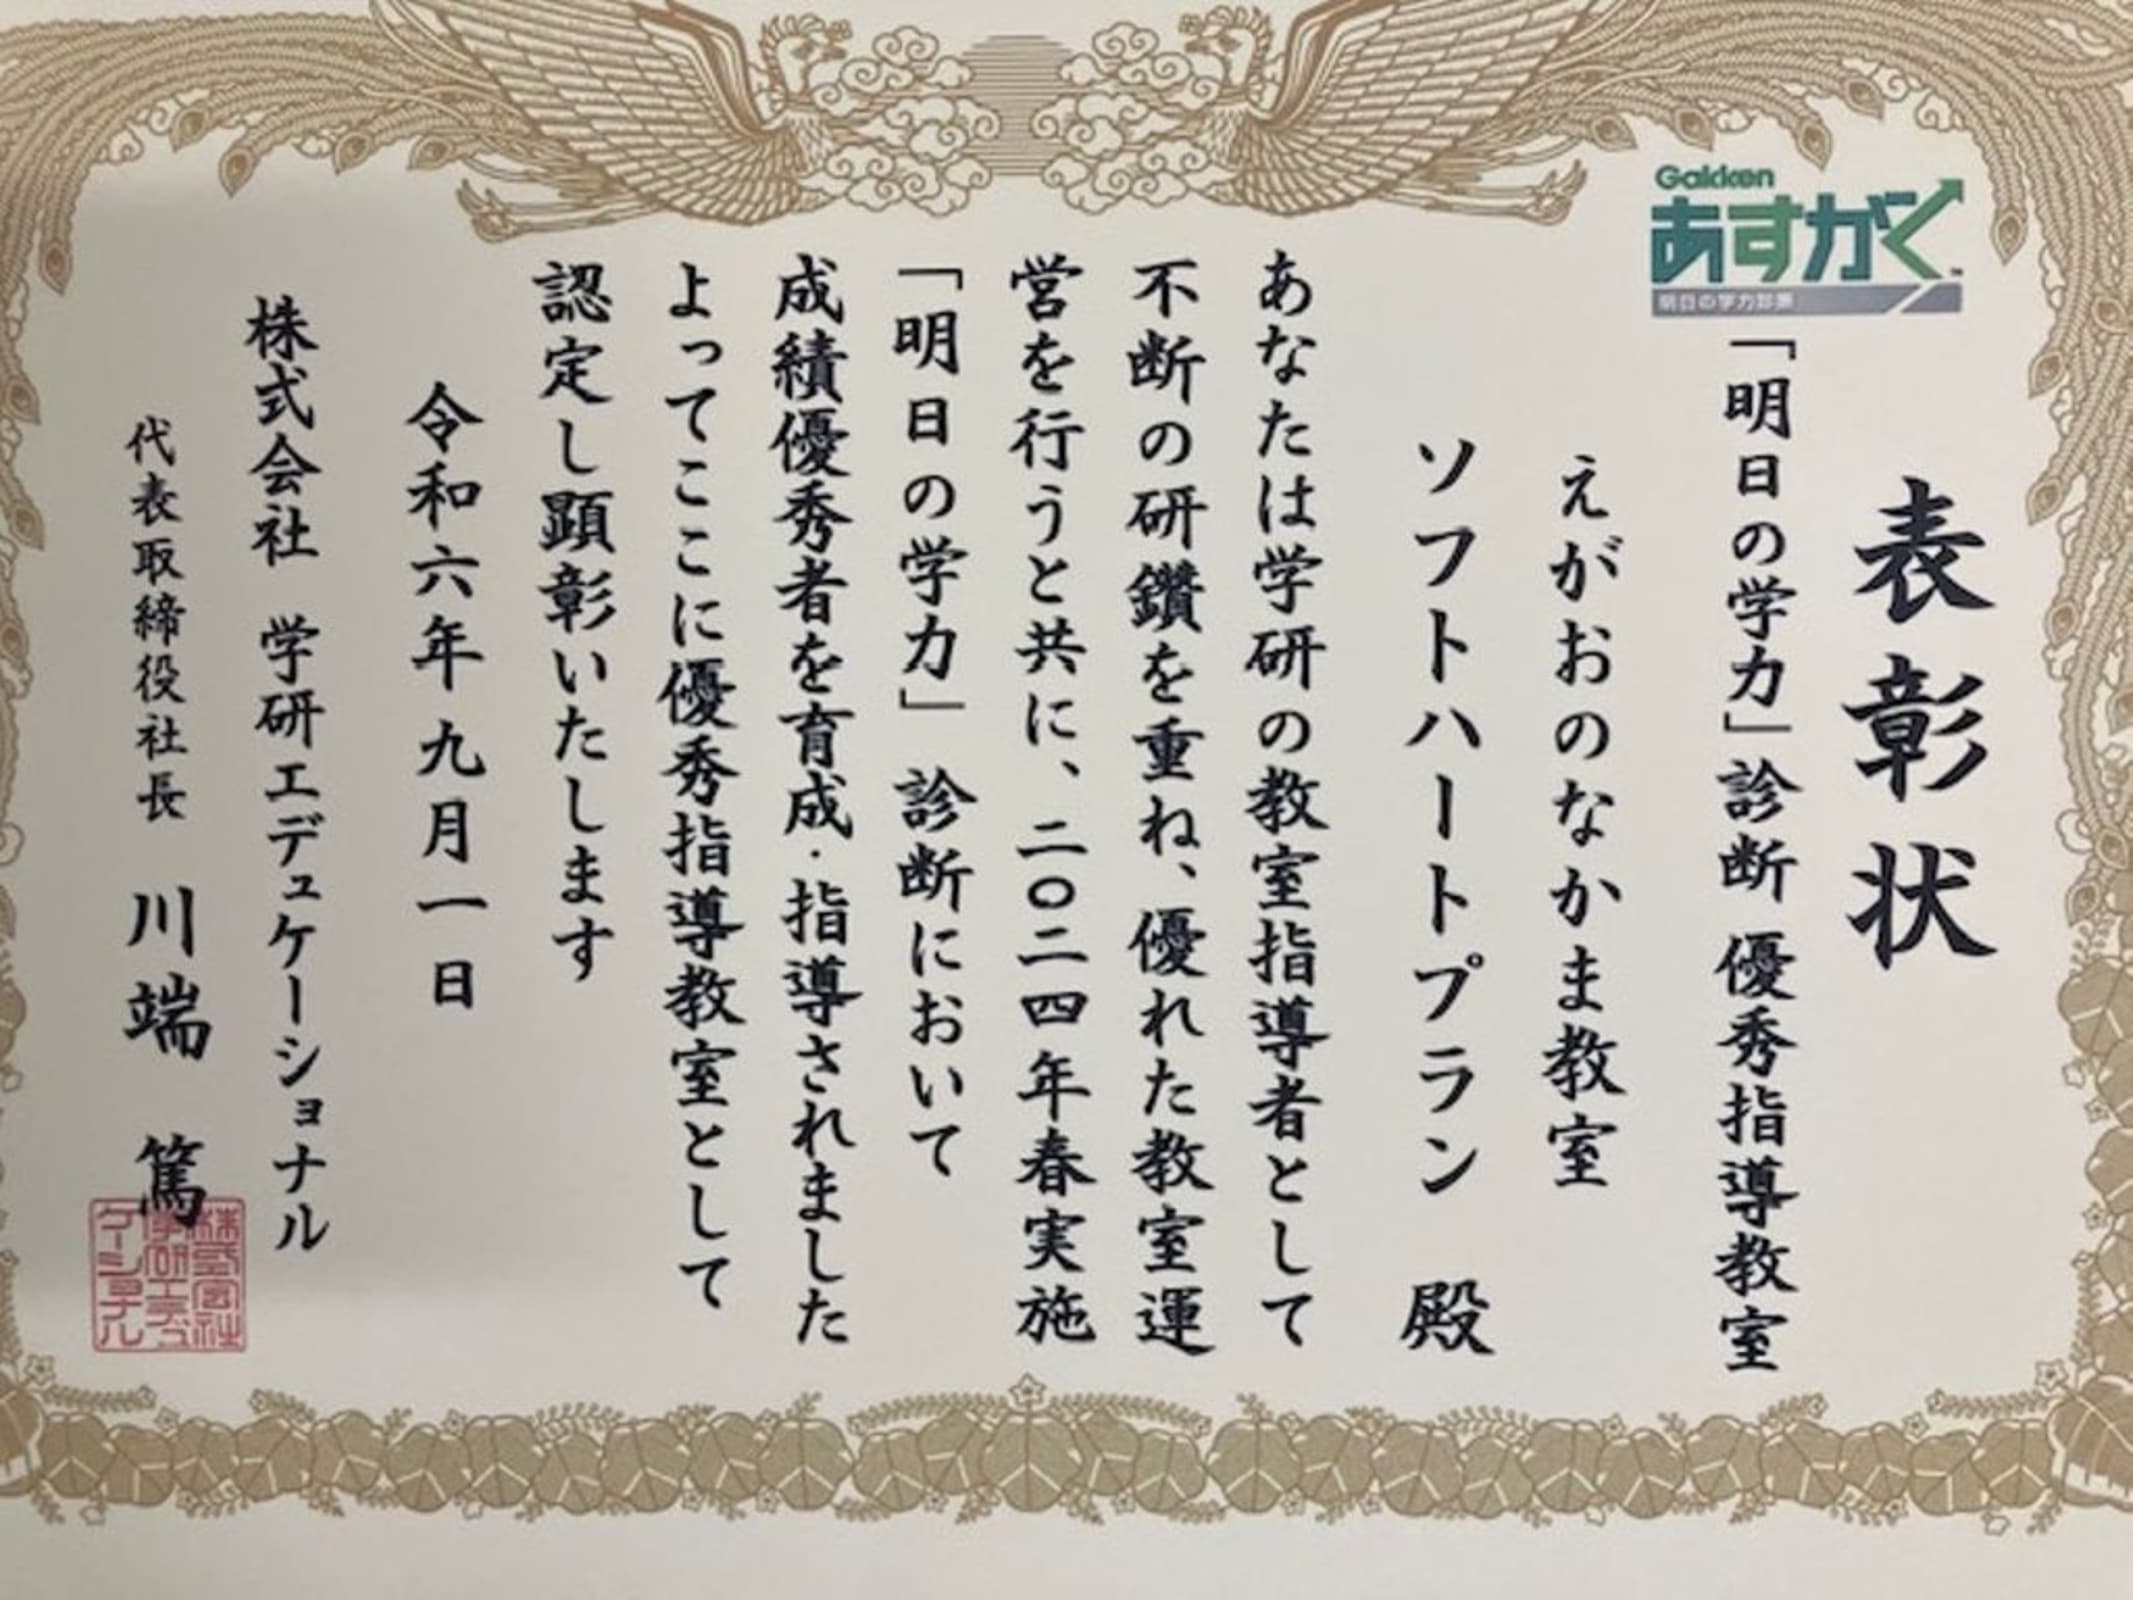 Gakken
あすがく
明日の学力診断
表彰状
「明日の学力」診断 優秀指導教室
えがおのなかま教室
ソフトハートプラン 殿
あなたは学研の教室指導者として
不断の研鑽を重ね、優れた教室運
営を行うと共に、二〇二四年春実施
「明日の学力」診断において
成績優秀者を育成・指導されました
よってここに優秀指導教室として
認定し顕彰いたします
令和六年九月一日
株式会社 学研エデュケーショナル
代表取締役社長 川端 篤
株式会社
学研エデュ
ケーショナル